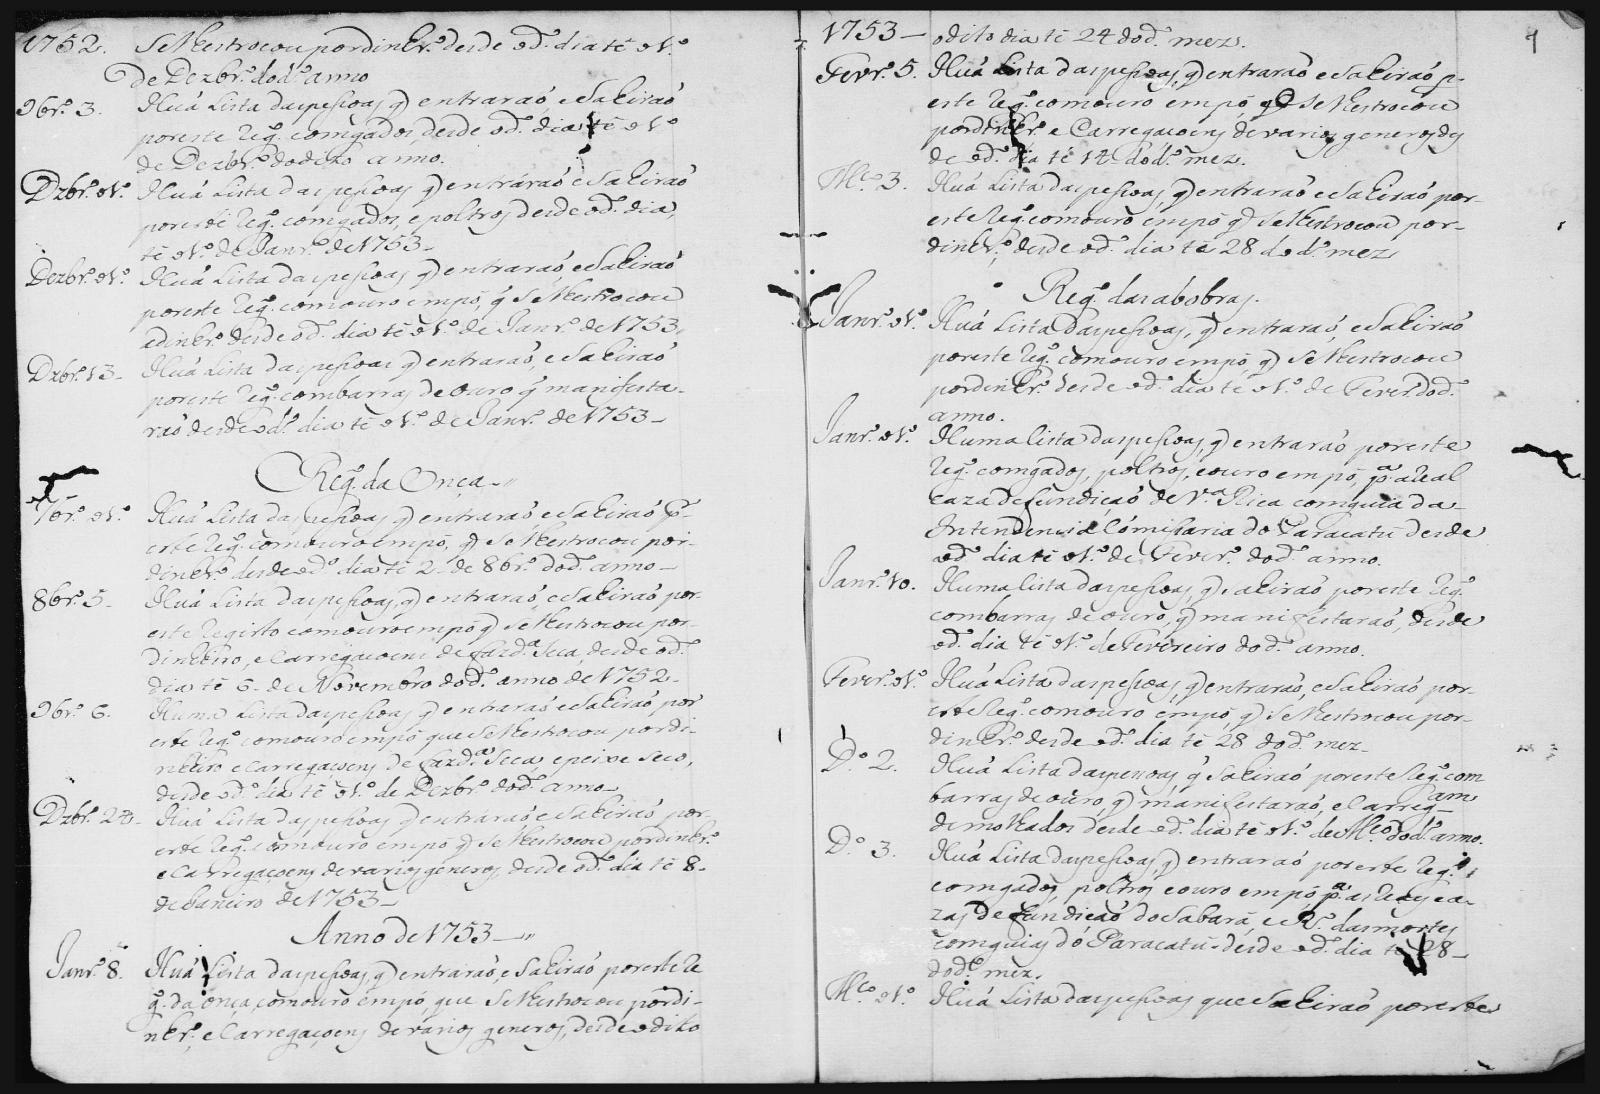 1752. Se lhestrocou pordinhr.º desde od.º dia tē o 1.º
de Dezbr.º dod.º anno
9br.º 3. Huá Lista daspessoas, q̃ entraraó, eSahiraó
poreste Reg.º comgados, desde od.º dia tē o 1.º
de Dezbr.º doditto anno.
Dzbr.º o 1.º Huá Lista daspessoas, q̃ entráraó eSahiraó
poreste Reg.º comgados, epoltros desde od.º dia,
tē o 1.º de Janr.º de 1753_
Dezbr.º o 1.º Huá Lista daspessoas q̃ entraraó eSahiraó
poreste Reg.º comouro empó, q̃ Se lhestrocou
adinhr.º desde od.º dia tē o 1.º de Janr.º de 1753,,
Dzbr.º 13_ Huá Lista daspessoas q̃ entraraó, eSahiraó
poreste Reg.º combarras de ouro q̃ manifesta-
raó desde od.º dia tē o 1.º de Janr.º de 1753_
Reg.º da Onça_,,
7br.º o 1.º Huá Lista das pessoas, q̃ entraraó, eSahiraó p.r
este Reg.º comouro empó, q̃ Se lhestrocou por-
dinhr.º desde od.º dia tē 2_ de 8br.º dod.º anno_
8br.º 5_ Huá Lista daspessoas, q̃ entraraó eSahiraó por-
este Registo comouro empó q̃ Se lhestrocou por-
dinheiro, eCarregaçoens de fazd.ª Seca, desde od.º
dia tē 6_ de Novembro dod.º anno de 1752_
9br.º 6. Huma Lista daspessoas, q̃ entraraó eSahiraó por
este Reg.º comouro empó que Se lhestrocou pordi-
nheiro eCarregaçoens de fazd.ª Seca, epeixe Seco,
desde od.º dia tē o 1.º de Dezbr.º dod.º anno_
Dzbr.º 24_ Huá Lista daspessoas q̃ entraraó eSahiraó por-
este Reg.º comouro empó q̃ Se lhestrocou pordinhr.º
eCarregaçoens devarios generos, desde od.º dia tē 8_
deJaneiro de 1753_
Anno de 1753_,,
Janr.º 8. Huá Lista daspessoas, q̃ entraraó, eSahiraó, poreste Re
g.º da onça, comouro empó, que Se lhestrocou pordi-
nhr.º, eCarregaçoens devarios generos, desde oditto
1
1753_ oditto dia tē 24 dod.º mez.
Fevr.º 5. Huá Lista daspessoas, q̃ entraraó eSahiraó p.r
este Reg.º comouro empó, q̃ Se lhestrocou
pordinhr.º e Carregaçoens devarios generos, des
de od.º dia tē 14 dod.º mez.
M.ço 3. Huá Lista daspessoas, q̃ entraraó eSahiraó por-
este Reg.º comouro empó q̃ Se lhestrocou por-
dinhr.º, desde od.º dia tē 28 dod.º mez
Reg.º dasabobras.
Janr.º o 1.º Huá Lista daspessoas, q̃ entraraó, eSahiraó
poreste Reg.º comouro empó q̃ Se lhestrocou
pordinhr.º desde od.º dia tē o 1.º de Fever.º dod.º
anno.
Janr.º o 1.º Huma lista daspessoas, q̃ entraraó poreste
Reg.º comgados, poltros, eouro empó, p.ª aReal
caza deFundicaó de V.ª Rica comguia da
Intendencia Comisaria do Paracatú desde
od.º dia tē o 1.º de Fever.º dod.º anno.
Janr.º 10. Huma lista daspessoas, q̃ Sahiraó poreste Reg.º
combarras de ouro, q̃ manifestaraó, desde
od.º dia tē o 1.º deFevereiro dod.º anno.
Fever.º o 1.º Huá Lista daspessoas, q̃ entraraó, eSahiraó por-
este Reg.º comouro empó, q̃ Se lhestrocou por-
dinhr.º desde od.º dia tē 28 dod.º mez_
D.º 2. Huá Lista daspessoas q̃ Sahiraó poreste Reg.º com
barras de ouro, q̃ manifestaraó, eCarreg.am
demolhados desde od.º dia tē o 1.º de M.ço dod.º anno.
D.º 3. Huá Lista daspessoas, q̃ entraraó poreste Reg.º
comgados, poltros eouro empó p.ª as Reaes ca-
zas de Fundicaó do Sabará, e R.º dasmortes
comguias do Paracatú desde od.º dia tē 28_
dod.º mez.
M.ço o 1.º Huá Lista daspessoas que Sahiraó poreste